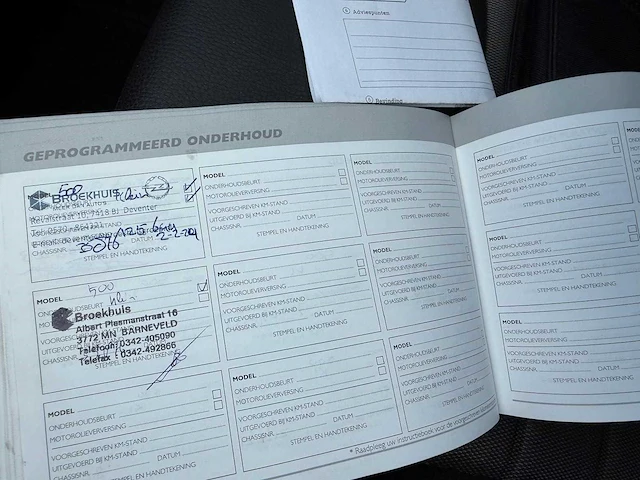 Adviespunten
Bevinding
GEPROGRAMMEERD ONDERHOUD
500
BROEKHUIS
Deventer
STEMPEL EN HANDTEKENING
MODEL
500
ONDERHOUDSBEURT
Broekhuis
Albert Plesmanstraat 16
3772 MN BARNEVELD
Telefoon: 0342-405090
Telefax : 0342-492866
MODEL
ONDERHOUDSBEURT
MOTOROLIEVERVERSING
VOORGESCHREVEN KM-STAND
UITGEVOERD BIJ KM-STAND
CHASSISNR. DATUM
STEMPEL EN HANDTEKENING
MODEL
ONDERHOUDSBEURT
MOTOROLIEVERVERSING
VOORGESCHREVEN KM-STAND
UITGEVOERD BIJ KM-STAND
CHASSISNR. DATUM
STEMPEL EN HANDTEKENING
MODEL
ONDERHOUDSBEURT
MOTOROLIEVERVERSING
VOORGESCHREVEN KM-STAND
UITGEVOERD BIJ KM-STAND
CHASSISNR. DATUM
STEMPEL EN HANDTEKENING
MODEL
ONDERHOUDSBEURT
MOTOROLIEVERVERSING
VOORGESCHREVEN KM-STAND
UITGEVOERD BIJ KM-STAND
CHASSISNR. DATUM
STEMPEL EN HANDTEKENING
MODEL
ONDERHOUDSBEURT
MOTOROLIEVERVERSING
VOORGESCHREVEN KM-STAND
UITGEVOERD BIJ KM-STAND
CHASSISNR. DATUM
STEMPEL EN HANDTEKENING
MODEL
ONDERHOUDSBEURT
MOTOROLIEVERVERSING
VOORGESCHREVEN KM-STAND
UITGEVOERD BIJ KM-STAND
CHASSISNR. DATUM
STEMPEL EN HANDTEKENING
MODEL
ONDERHOUDSBEURT
MOTOROLIEVERVERSING
VOORGESCHREVEN KM-STAND
UITGEVOERD BIJ KM-STAND
CHASSISNR. DATUM
STEMPEL EN HANDTEKENING
* Raadpleeg uw instructieboek voor de voorgeschreven
MODEL
ONDERHOUDSBEURT
MOTOROLIEVERVERSING
VOORGESCHREVEN KM-STAND
UITGEVOERD BIJ KM-STAND
CHASSISNR. DATUM
STEMPEL EN HANDTEKENING
MODEL
ONDERHOUDSBEURT
MOTOROLIEVERVERSING
VOORGESCHREVEN KM-STAND
UITGEVOERD BIJ KM-STAND
CHASSISNR. DATUM
STEMPEL EN HANDTEKENING
MODEL
ONDERHOUDSBEURT
MOTOROLIEVERVERSING
VOORGESCHREVEN KM-STAND
UITGEVOERD BIJ KM-STAND
CHASSISNR. DATUM
STEMPEL EN HANDTEKENING